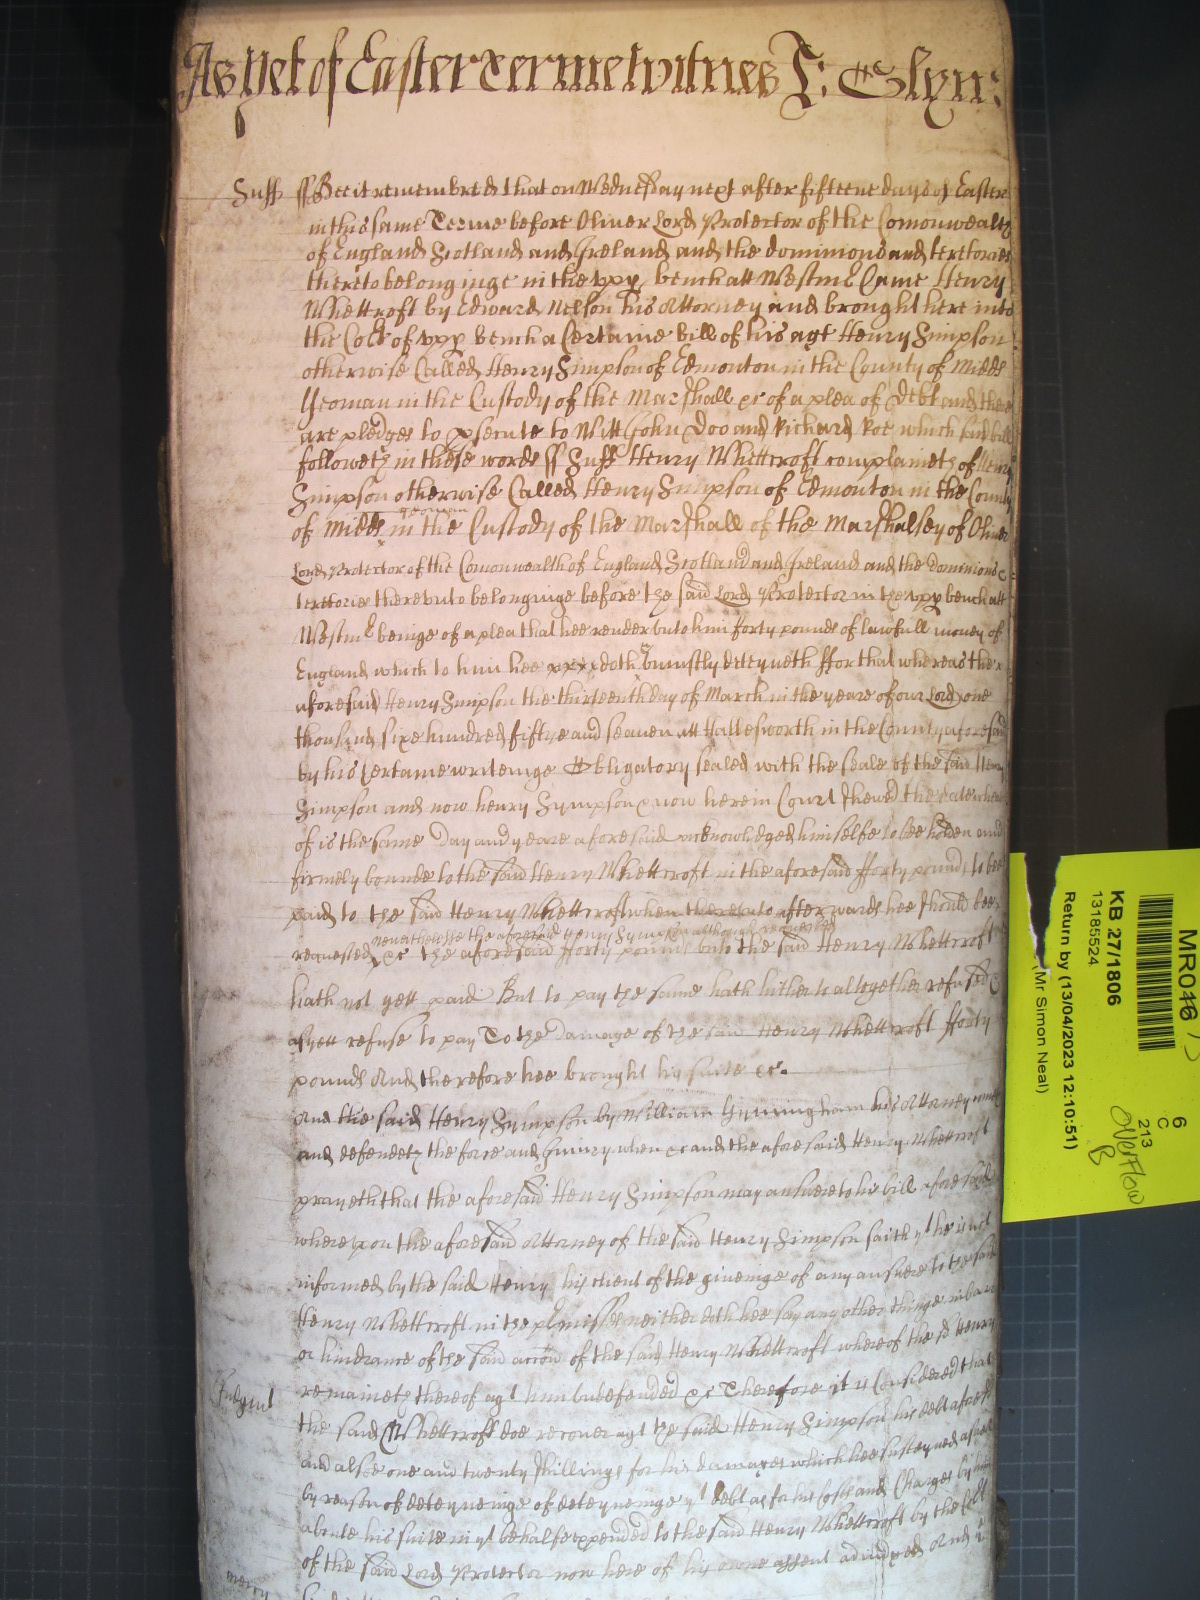 As yet of Easter terme witnes J: Glyn:
Suff ss Bee it remembred that on Wednesday next after fifteene dayes of Easter
in this same Terme before Oliver Lord Protector of the Comonwealth
of England Scotland and Ireland and the dominions and terretories
thereto belonginge in the vpp bench att Westm Came Henry
Whettcroft by Edward Nelson his Attorney and brought here into
the Cort of vpp bench a Certaine Bill of his agt Henry Simpson
otherwise Called Henry Simpson of Edmonton in the County of Midds
Yeoman in the Custody of the Marshall &c of a plea of Debt and there
are pledges to psecute to Witt John Doo and Richard Roe which said bill
followeth in these words ss Suff Henry Whettcroft complaineth of Henry
Simpson otherwise Called Henry Simpson of Edmonton in the County
of Midds yeoman in the Custody of the Marshall of the Marshalsey of Oliver
Lord Protector of the Comonwealth of England Scotland and Ireland and the dominions &
terretories therevnto belonginge before the said Lord Protector in the vpp bench att
Westm beinge of a plea that hee render vnto him forty pounds of lawfull money of
England which to him hee doth & iniustly deteyneth ffor that whereas the
aforesaid Henry Simpson the thirteenth day of March in the yeare of our Lord one
thousand sixe hundred fiftye and seaven att Hallesworth in the County aforesaid
by his certaine writeinge Obligatory sealed with the seale of the said Henry
Simpson and now henry Sympson & now herein Court shewed the date where
of is the same Day and yeare aforesaid acknowledged himselfe to bee holden and
firmely bounde to the said Henry Whettcroft in the aforesaid fforty pounds to bee
paid to the said Henry Whettcroft when therevnto afterwards hee should bee
nevertheless the aforesaid Henry Sympson although requested
requested &c the aforesaid fforty pounds vnto the said Henry Whettcroft
hath not yett paid But to pay the same hath hitherto altogether refused &
as yett refuse to pay To the Damage of the said Henry Whettcroft fforty
pounds And therefore hee brought his suite &c.
And the said Henry Sympson by William Gyrningham his Attorney cometh
and defendeth the force and Iniury when &c and the aforesaid Henry Whettcroft
prayeth that the aforesaid Henry Simpson may answere to his bill aforesaid
wherevpon the aforesaid Attorney of the said Henry Simpson saith yt he is not
informed by the said Henry his client of the giveinge of any answere to the said
Henry Whettcroft in the pmisses neither doth hee say any other thinge in barr
or hindrance of the said accon of the said Henry Whettcroft whereof the sd Henry
Judgmt
remaineth thereof agt him vndefended &c Therefore it is Considered that
the said Whettcroft doe recover agt the said Henry Simpson his debt aforesd
and alsoe one and twenty shillings for his damages which hee susteyned aswell
by reason of deteyneinge of deteyneinge yt debt as for his Costs and Charges by him
aboute his suite in yt behalfe expended to the said Henry Whettcroft by the Cort
of the said Lord Protector now here of his owne assent adiudged And ye
mercy
MR046
KB 27/1806
13185524
Return by (13/04/2023 12:10:51)
(Mr. Simon Neal)
6
C
213
Overflow
B